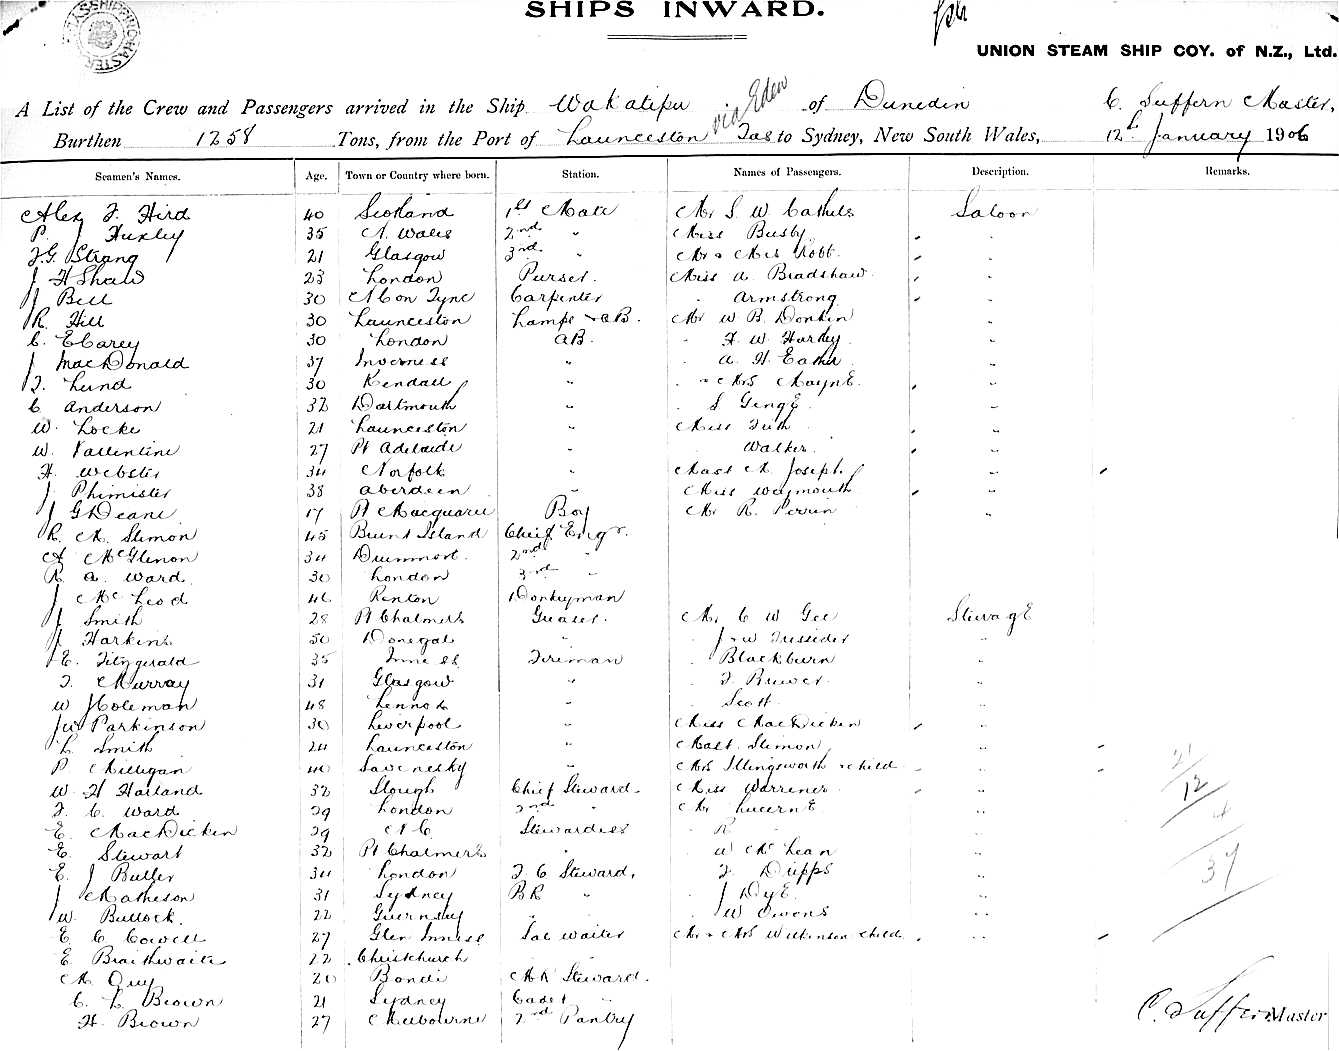 SHIPS INWARD.
UNION STEAM SHIP COY. of N.Z., Ltd.
A List of the Crew and Passengers arrived in the Ship Wakatipu via Eden of Dunedin C. Suffern Master,
Burthen 1258 Tons, from the Port of Launceston Tas to Sydney, New South Wales, 12th January 1906
Seamen's Names. Age. Town or Country where born. Station. Names of Passengers. Description. Remarks.
Alex J. Hird 40 Scotland 1st Mate Mr S. W. Saloon
P. J Huxley 35 N. Wales 2nd " Miss Busby "
J. G. Strang 21 Glasgow 3rd " Mr & Mrs Robb "
J H Shaw 23 London Purser. Miss A Bradshaw "
J Bell 30 N on Tyne Carpenter " Armstrong "
R. Hill 30 Launceston Lamps & AB. Mr W B. Donkin "
C. E Carey 30 London AB. " F. W Harley "
J MacDonald 37 Inverness " " A. H. "
J. Lund 30 Kendall " " & Mrs Mayne. "
C Anderson 32 Dartmouth " " S "
W. Locke 21 Launceston " Miss "
W. Vallentine 27 Pt Adelaide " " Walker "
H. Webster 34 Norfolk " Mast M. Joseph "
J Phimister 38 Aberdeen " Miss Waymouth "
J G Deane 17 Pt Macquarie Boy Mr R. Perrin "
R. M. Slimon 45 Burnt Island Chief Engr.
A McGlinon 34 2nd "
R A. Ward 30 London 3rd "
J McLeod 46 Renton Donkeyman
J Smith 28 Pt Chalmers Greaser. Mr C W Gee Steerage
J Harkins 50 Donegal " " J W "
E. Fitzgerald 35 Fireman " Blackburn "
J. Murray 31 Glasgow " " J Brewer "
W Holeman 48 Lennox " " Scott "
JW Parkinson 30 Liverpool " Miss MacDicken "
L Smith 24 Launceston " Mast. Slimon "
P Milligan 40 Mrs Illingsworth & child "
W H Harland 32 Slough Chief Steward. Miss Warriner "
J. C. Ward 29 London 2nd " Mr Lucerne "
E. MacDicken 29 N C Stewardess " R "
E. Stewart 32 Pt Chalmers " " W McLean "
E. J Butler 34 London F C Steward. " J. Dripps "
J Matheson 31 Sydney BR " " J Dye "
W. Bullock. 22 Guernsey " " " W Owens "
E C Cowell 27 Glen Inness Sal waiter Mr & Mrs Wilkinson child "
E Braithwaite 22 Christchurch
M Guy 20 Bondi Steward.
C. L Brown 21 Sydney Cadet "
H. Brown 27 Melbourne 2nd Pantry
21
12
4
37
C. Suffern Master